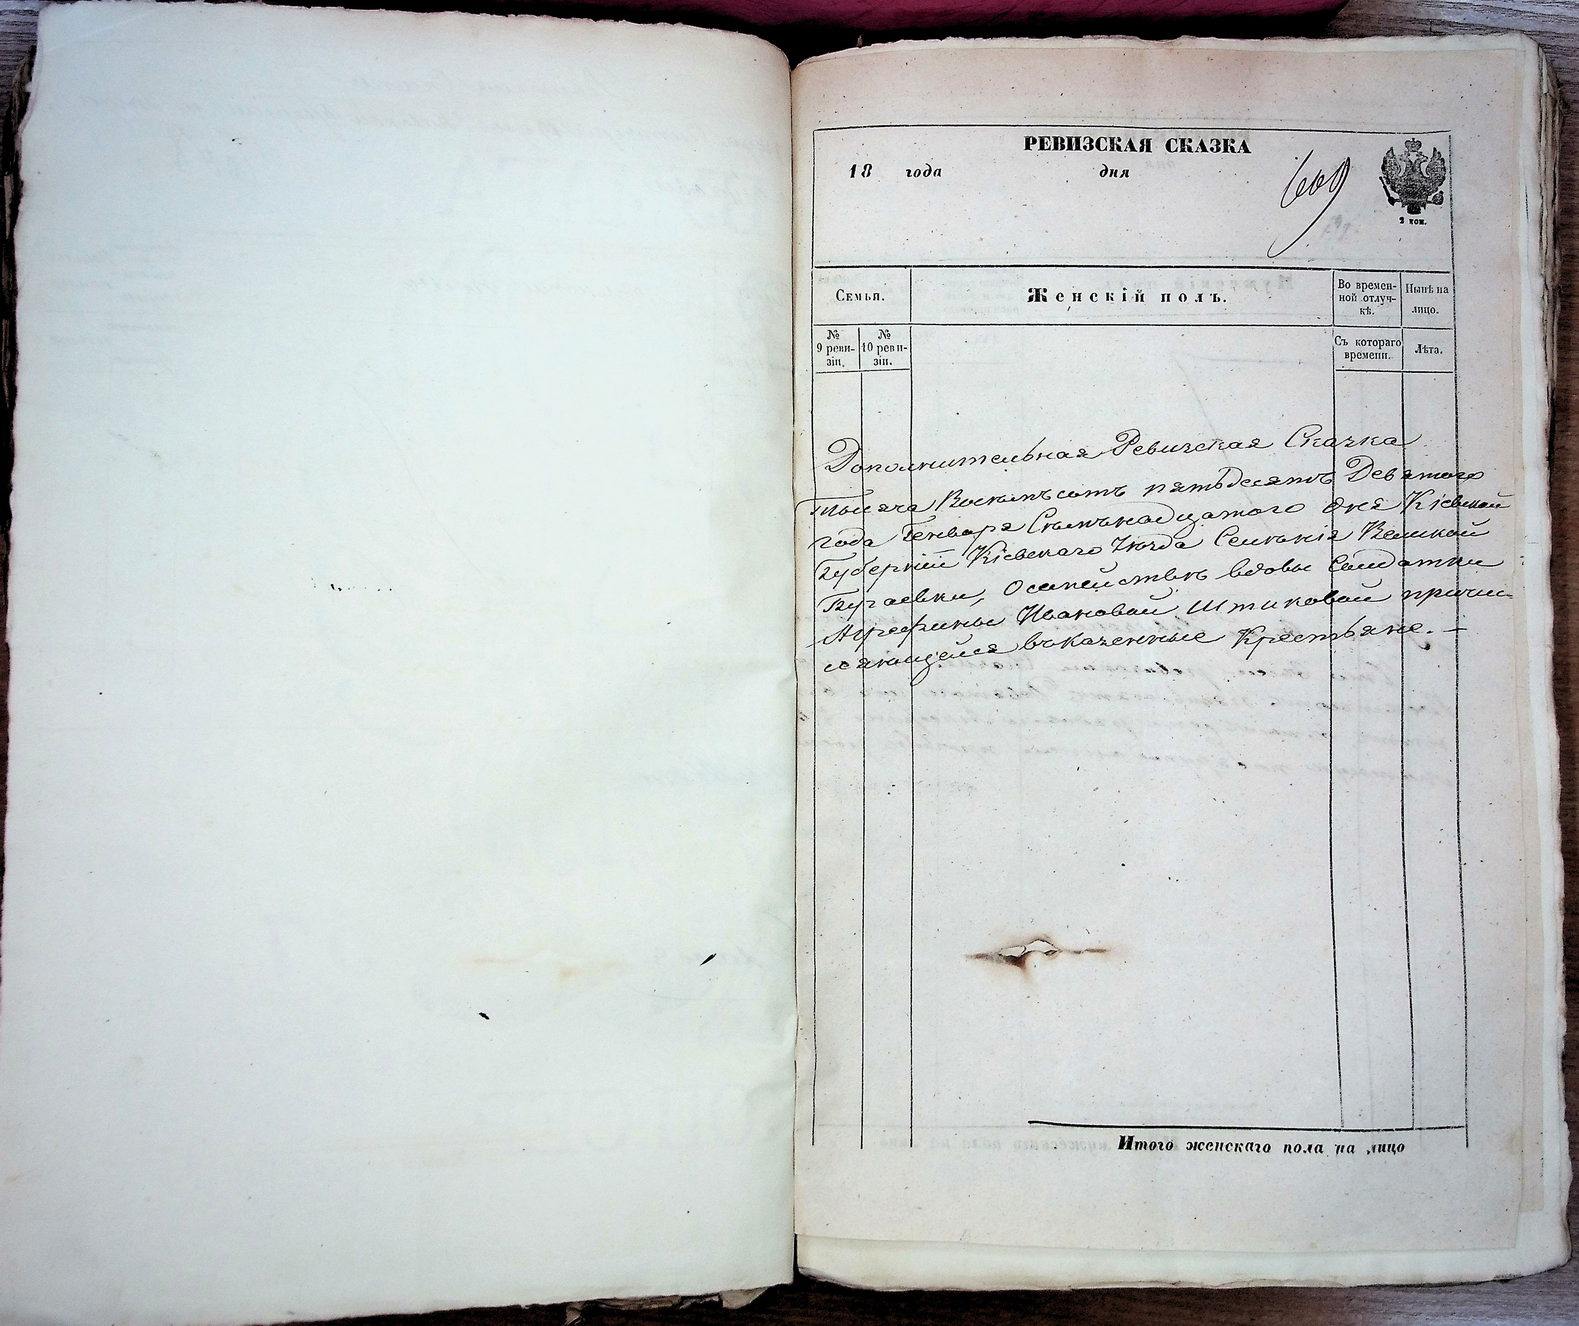 РЕВИЗСКАЯ СКАЗКА
18 года дня
609
2 коп.
Семьи.
Женскій полъ.
Во времен-
ной отлуч-
кѣ.
Нынѣ на
лицо.
№
9 реви-
зіи.
№
10 реви-
зіи.
Съ котораго
времени.
Лѣта.
Дополнительная Ревизская Сказка
Тысяча Восемьсотъ пятьдесятъ Девятого
года Генваря Семьнадцатого дня Кіевской
Губерніи Кіевскаго Уезда Селенія Великой
Бугаевки, О семействѣ вдовы Солдатки
Агрефины Ивановой Штиковой причи-
сляющейся въ казенные Крестьяне. —
Итого женскаго пола на лицо